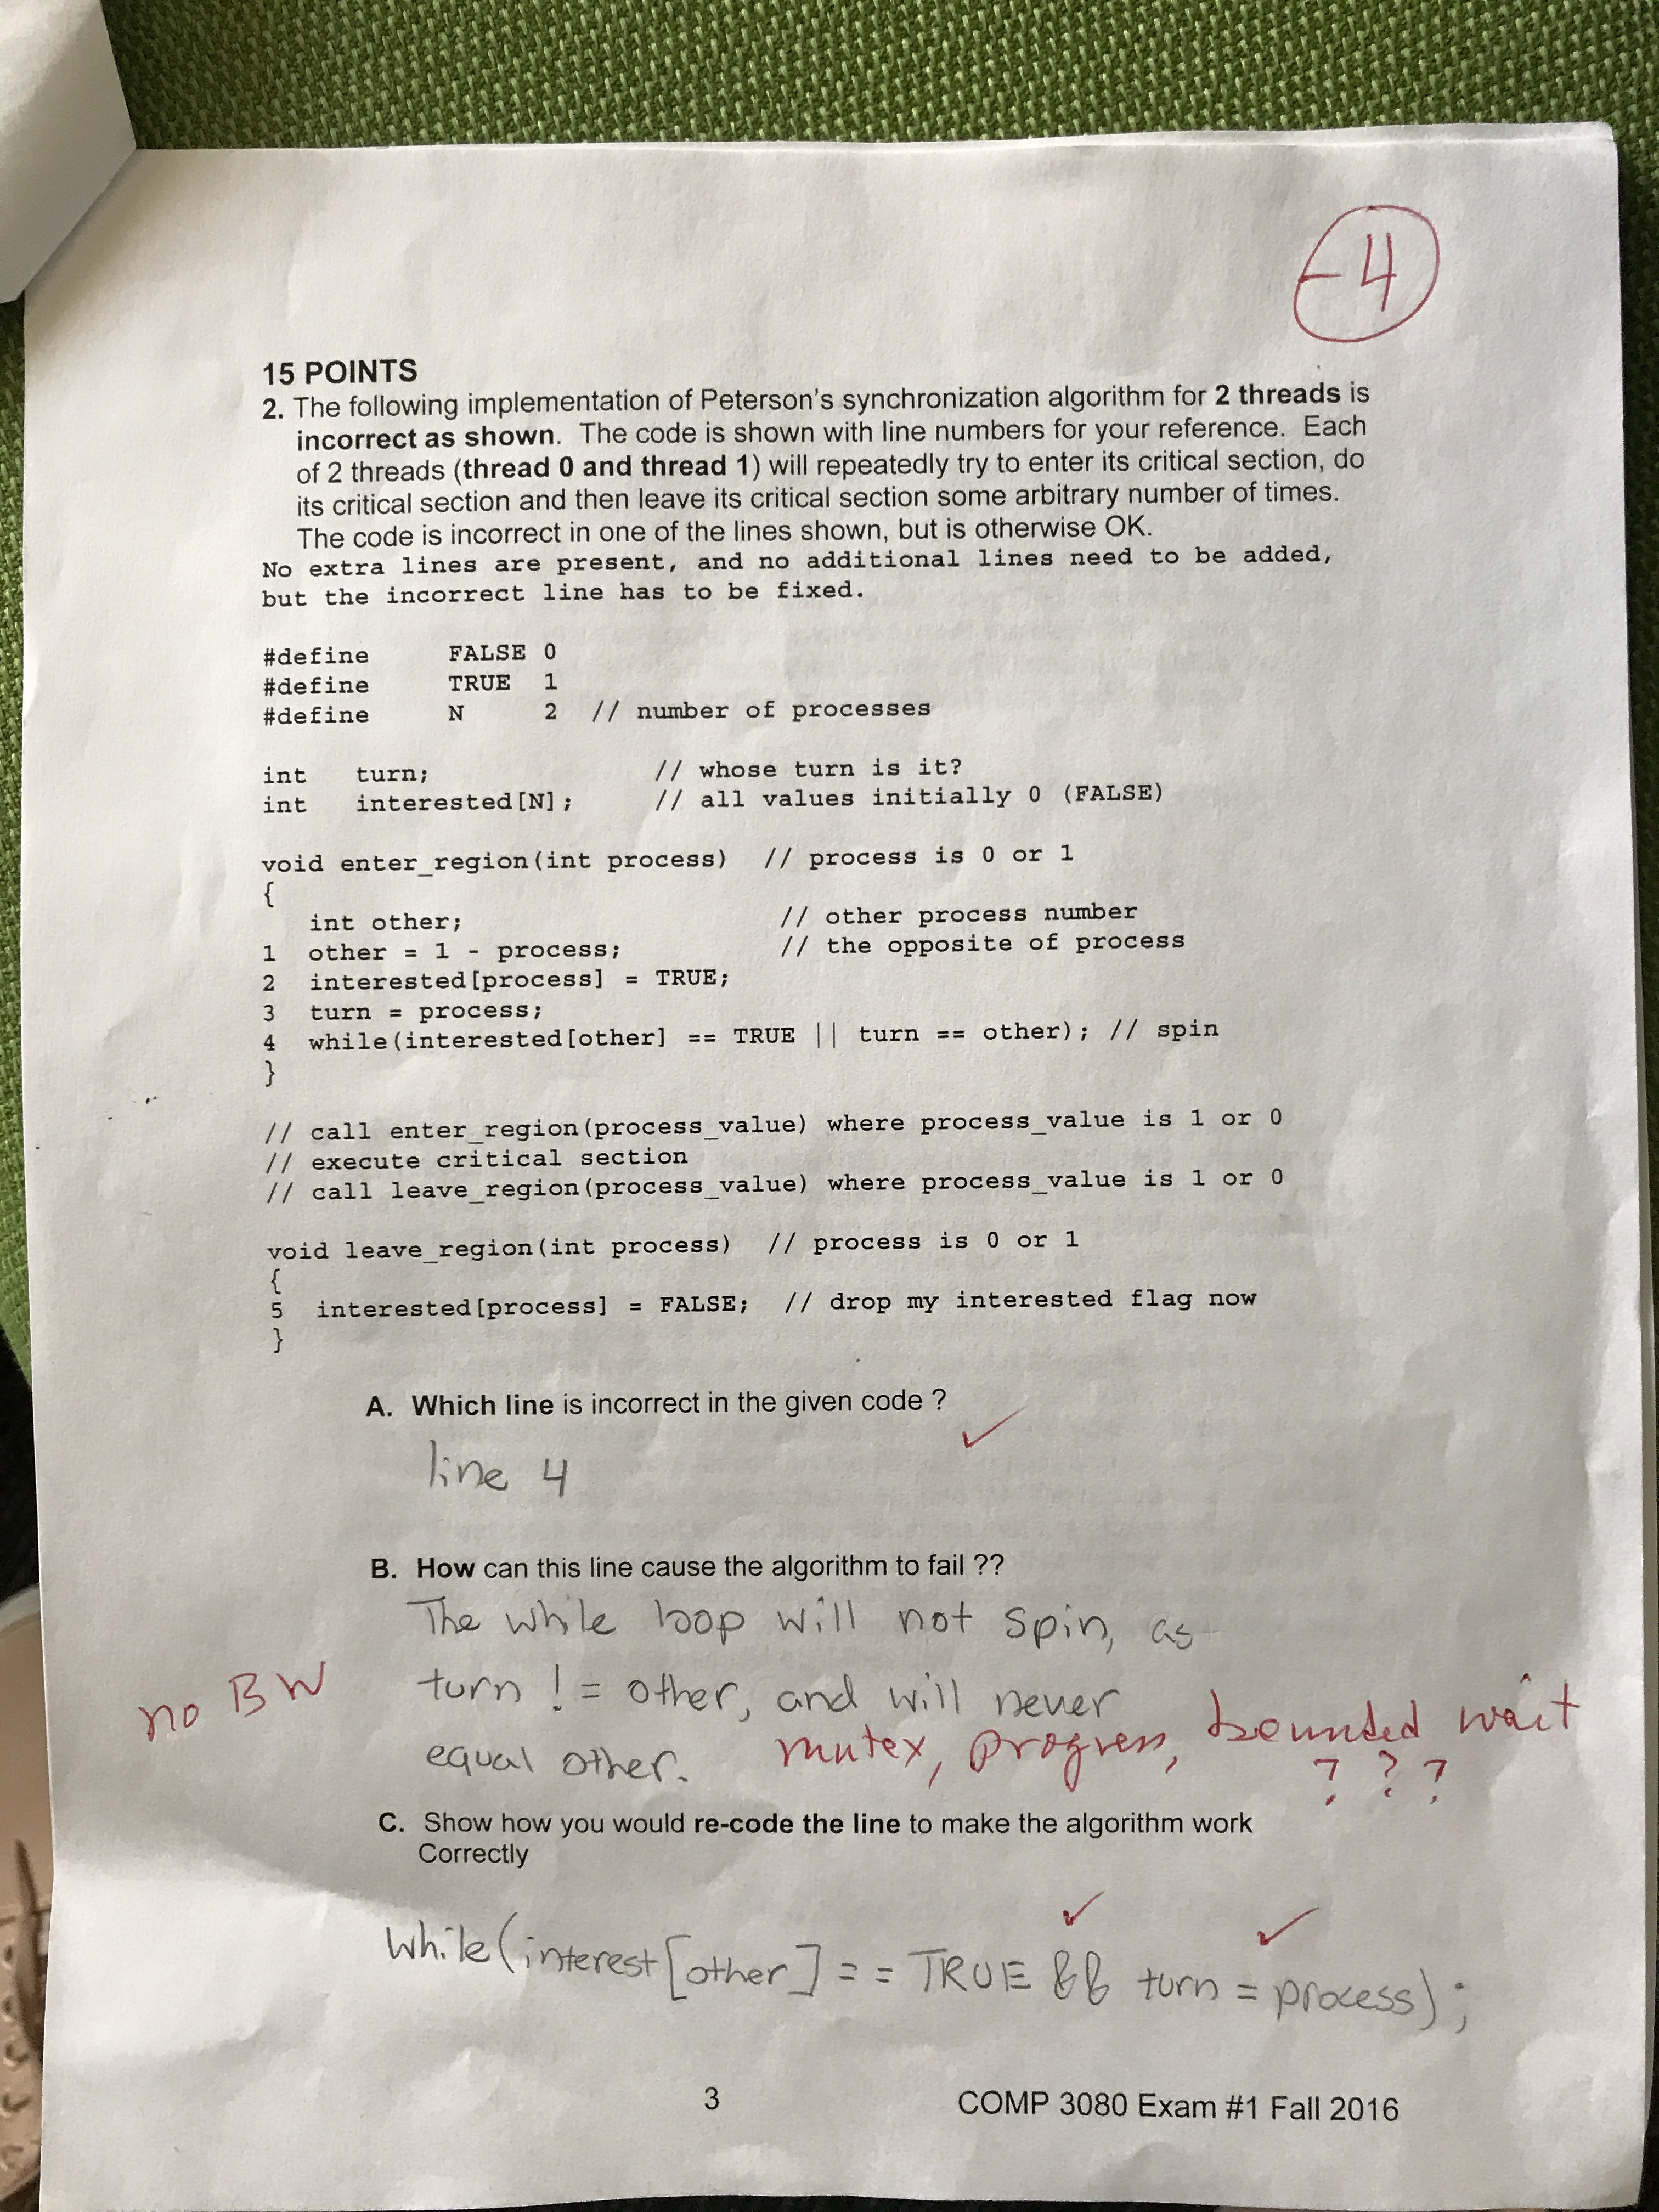 -4
15 POINTS
2. The following implementation of Peterson's synchronization algorithm for 2 threads is
incorrect as shown. The code is shown with line numbers for your reference. Each
of 2 threads (thread 0 and thread 1) will repeatedly try to enter its critical section, do
its critical section and then leave its critical section some arbitrary number of times.
The code is incorrect in one of the lines shown, but is otherwise OK.
No extra lines are present, and no additional lines need to be added,
but the incorrect line has to be fixed.
#define FALSE 0
#define TRUE 1
#define N 2 // number of processes
int turn; // whose turn is it?
int interested[N]; // all values initially 0 (FALSE)
void enter_region(int process) // process is 0 or 1
{
int other; // other process number
1 other = 1 - process; // the opposite of process
2 interested[process] = TRUE;
3 turn = process;
4 while(interested[other] == TRUE || turn == other); // spin
}
// call enter_region(process_value) where process_value is 1 or 0
// execute critical section
// call leave_region(process_value) where process_value is 1 or 0
void leave_region(int process) // process is 0 or 1
{
5 interested[process] = FALSE; // drop my interested flag now
}
A. Which line is incorrect in the given code ?
line 4
B. How can this line cause the algorithm to fail ??
The while loop will not spin, as
no BW turn != other, and will never
equal other. mutex, progress, bounded wait
? ? ?
C. Show how you would re-code the line to make the algorithm work
Correctly
while(interest[other] == TRUE && turn = process);
3 COMP 3080 Exam #1 Fall 2016